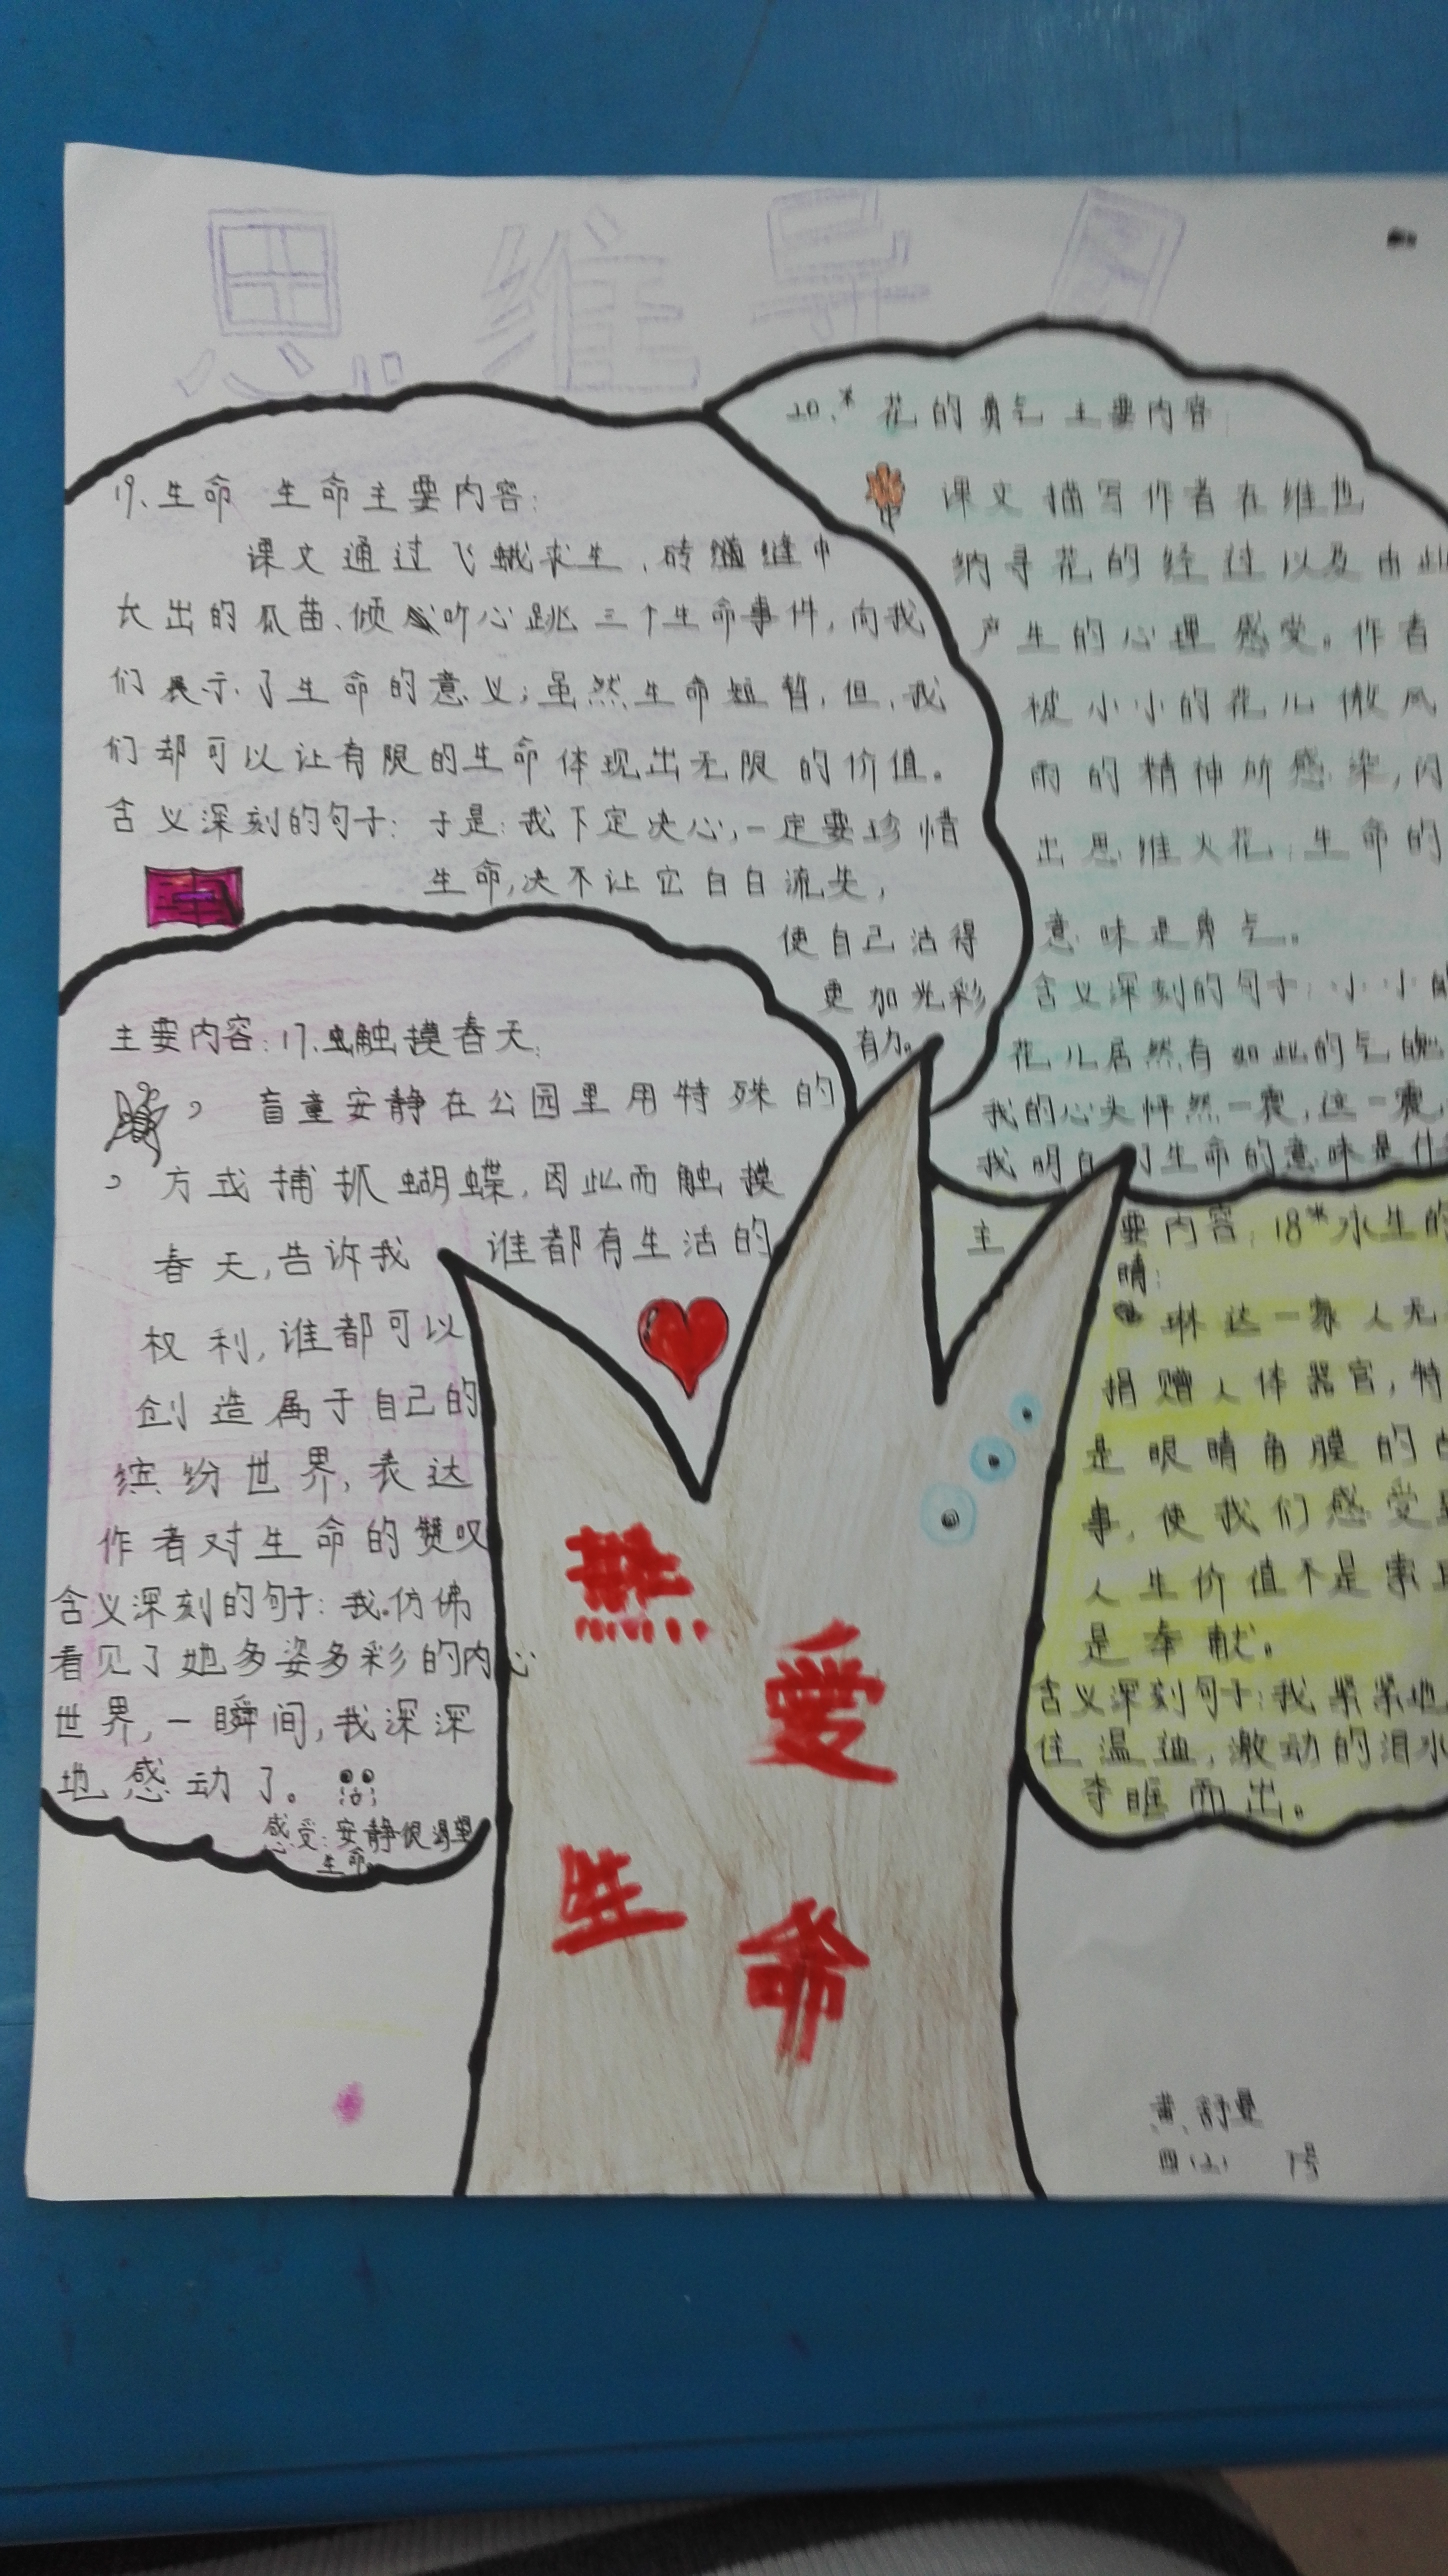 思维导图
19、生命 生命主要内容：
课文通过飞蛾求生，砖缝中
长出的瓜苗、倾听心跳三个生命事件，向我
们展示了生命的意义；虽然生命短暂，但，我
们却可以让有限的生命体现出无限的价值。
含义深刻的句子：于是：我下定决心，一定要珍惜
生命，决不让它白白流失，
使自己活得
更加光彩
有力。
20.* 花的勇气 主要内容
课文描写作者在维也
纳寻花的经过以及由此
产生的心理感受。作者
被小小的花儿微风
雨的精神所感染，闪
出思维火花，生命的
意味是勇气。
含义深刻的句子：小小的
花儿居然有如此的气魄
我的心头怦然一震，这一震，
我明白了生命的意味是什
主要内容：17、触摸春天：
盲童安静在公园里用特殊的
方式捕抓蝴蝶，因此而触摸
春天，告诉我 谁都有生活的
权利，谁都可以
创造属于自己的
缤纷世界，表达
作者对生命的赞叹
含义深刻的句子：我仿佛
看见了她多姿多彩的内心
世界，一瞬间，我深深
地感动了。
感受：安静很渴望
生命。
主要内容：18*永生的
睛：
琳达一家人无
捐赠人体器官，特
是眼睛角膜的
事，使我们感受
人生价值不是索
是奉献。
含义深刻句子：我紧紧地
住温迪，激动的泪水
夺眶而出。
热爱
生命
黄舒曼
四(2) 7号